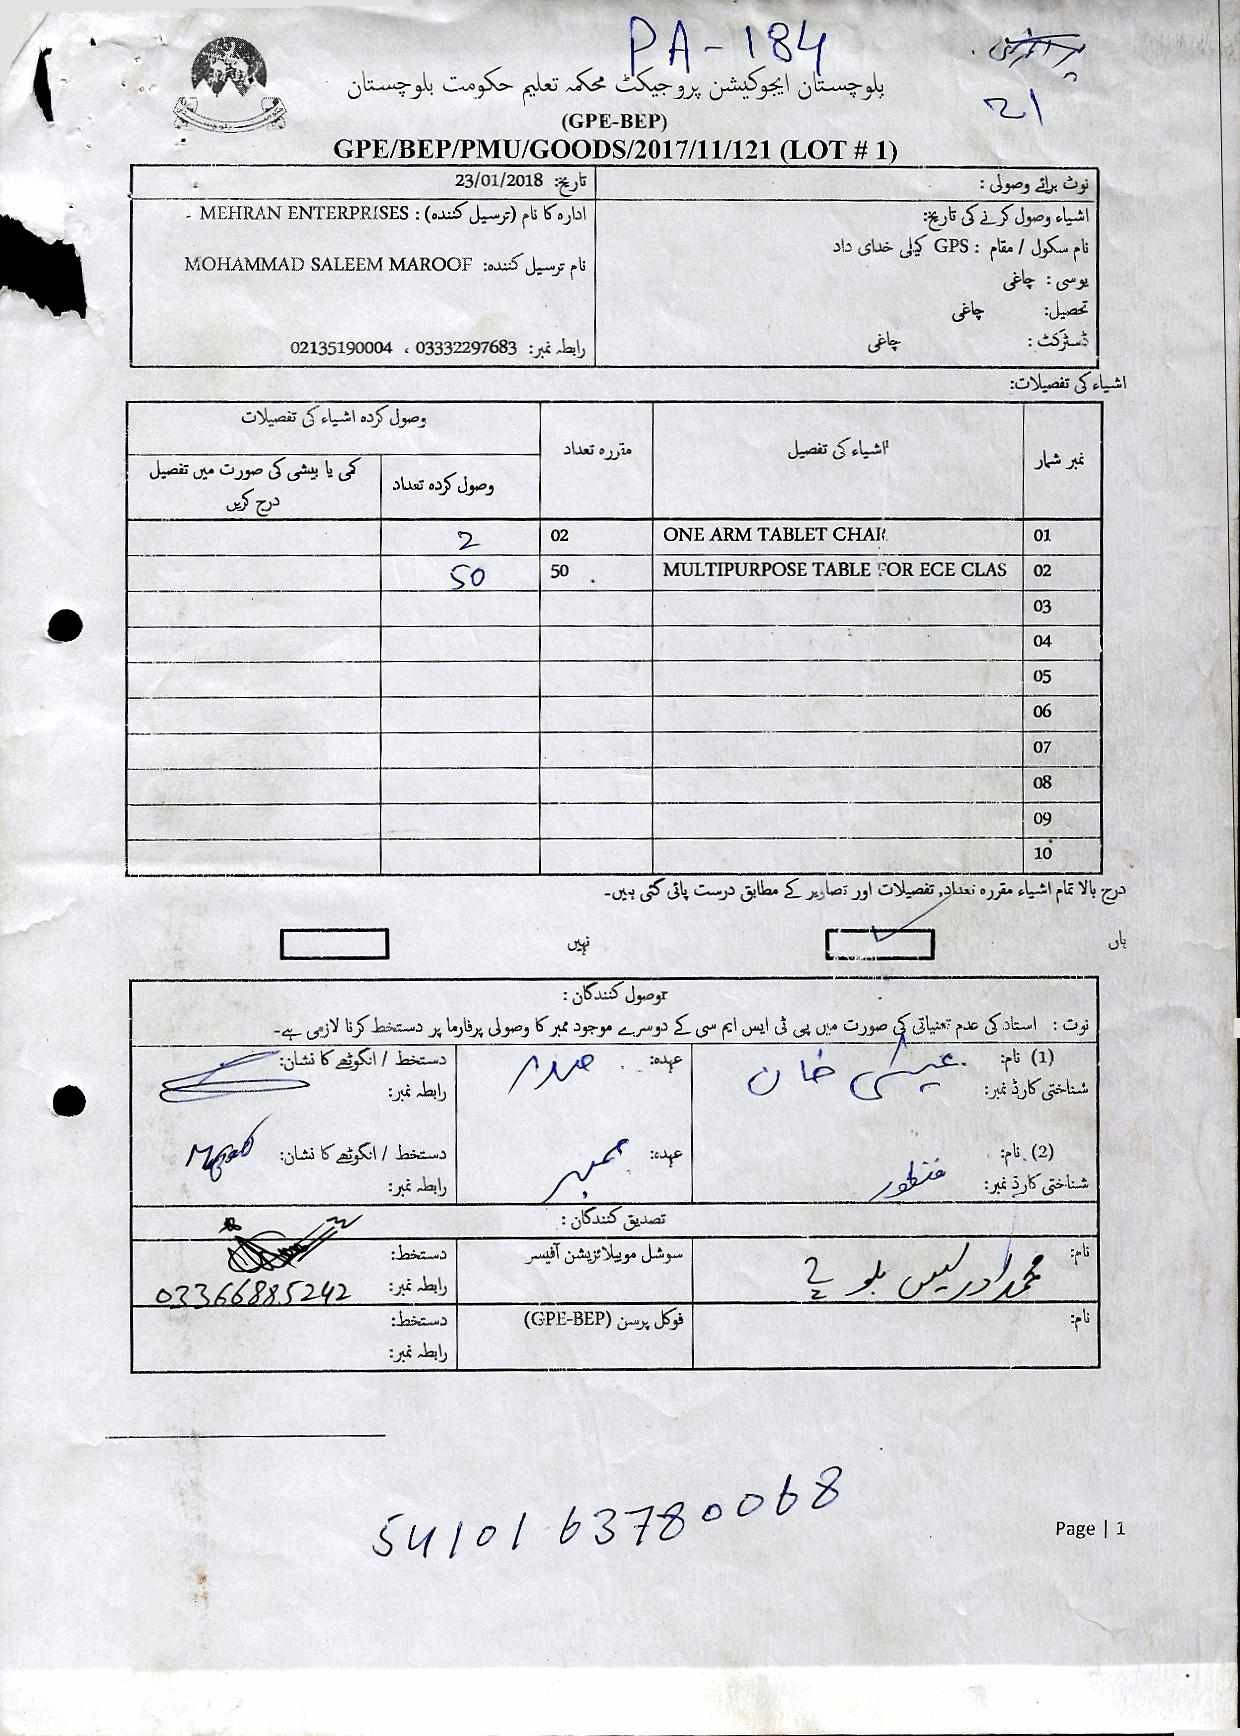 PA-184
21
بلوچستان ایجوکیشن پروجیکٹ محکمہ تعلیم حکومت بلوچستان
(GPE-BEP)
GPE/BEP/PMU/GOODS/2017/11/121 (LOT # 1)
نوٹ برائے وصولی :
اشیاء وصول کرنے کی تاریخ:
نام سکول / مقام : GPS کیلی خدای داد
یوسی : چاغی
تحصیل: چاغی
ڈسٹرکٹ : چاغی
تاریخ: 23/01/2018
ادارہ کا نام (ترسیل کنندہ) : MEHRAN ENTERPRISES
نام ترسیل کنندہ: MOHAMMAD SALEEM MAROOF
رابطہ نمبر: 03332297683 ، 02135190004
اشیاء کی تفصیلات:
نمبر شمار اشیاء کی تفصیل متررہ تعداد وصول کردہ اشیاء کی تفصیلات
وصول کردہ تعداد کمی یا بیشی کی صورت میں تفصیل درج کریں
01 ONE ARM TABLET CHAI 02 2
02 MULTIPURPOSE TABLE FOR ECE CLAS 50 50
03
04
05
06
07
08
09
10
درج بالا تمام اشیاء مقررہ تعداد, تفصیلات اور تصاویر کے مطابق درست پائی گئی ہیں۔
ہاں نہیں
وصول کنندگان :
نوٹ : استاد کی عدم تعنیاتی کی صورت میں پی ٹی ایس ایم سی کے دوسرے موجود ممبر کا وصولی پرفارما پر دستخط کرنا لازمی ہے۔
(1) نام: عیسٰی خان عہدہ: صدر دستخط / انگوٹھے کا نشان:
شناختی کارڈ نمبر: رابطہ نمبر:
(2) نام: منظور عہدہ: ممبر دستخط / انگوٹھے کا نشان:
شناختی کارڈ نمبر: رابطہ نمبر:
تصدیق کنندگان :
نام: محمد ادریس بلوچ سوشل موبیلائزیشن آفیسر دستخط:
رابطہ نمبر: 03366885242
نام: فوکل پرسن (GPE-BEP) دستخط:
رابطہ نمبر:
54101 63780068
Page | 1